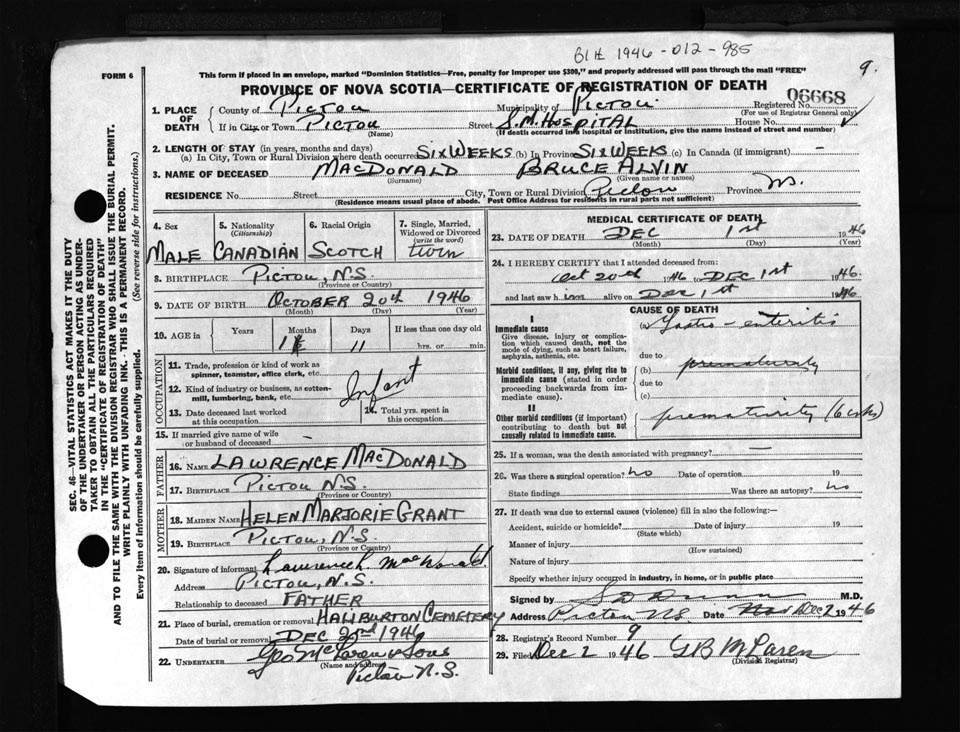 B1H 1946-012-985
FORM 6
This form if placed in an envelope, marked "Dominion Statistics—Free, penalty for improper use $300," and properly addressed will pass through the mail "FREE"
9.
PROVINCE OF NOVA SCOTIA—CERTIFICATE OF REGISTRATION OF DEATH
1. PLACE OF DEATH
County of Pictou Municipality of Pictou. Registered No. 06668
(For use of Registrar General only)
If in City or Town Pictou Street S.M. HOSPITAL House No.
(Name) (If death occurred in a hospital or institution, give the name instead of street and number)
2. LENGTH OF STAY (in years, months and days)
(a) In City, Town or Rural Division where death occurred SIX WEEKS (b) In Province SIX WEEKS (c) In Canada (if immigrant) —
3. NAME OF DECEASED MACDONALD BRUCE ALVIN
(Surname) (Given name or names)
RESIDENCE No. Street City, Town or Rural Division Pictou Province N.S.
(Residence means usual place of abode. Post Office Address for residents in rural parts not sufficient)
4. Sex MALE
5. Nationality (Citizenship) CANADIAN
6. Racial Origin SCOTCH
7. Single, Married, Widowed or Divorced (write the word) twin
8. BIRTHPLACE PICTOU, N.S.
(Province or Country)
9. DATE OF BIRTH OCTOBER 20th 1946
(Month) (Day) (Year)
10. AGE in Years Months Days If less than one day old
1 11 hrs. or min.
OCCUPATION
11. Trade, profession or kind of work as spinner, teamster, office clerk, etc.
12. Kind of industry or business, as cotton-mill, lumbering, bank, etc.
Infant
13. Date deceased last worked at this occupation
14. Total yrs. spent in this occupation
15. If married give name of wife or husband of deceased —
FATHER
16. NAME LAWRENCE MACDONALD
17. BIRTHPLACE PICTOU N.S.
(Province or Country)
MOTHER
18. MAIDEN NAME HELEN MARJORIE GRANT
19. BIRTHPLACE PICTOU, N.S.
(Province or Country)
20. Signature of informant Lawrence MacDonald.
Address PICTOU, N.S.
Relationship to deceased FATHER
21. Place of burial, cremation or removal HALIBURTON CEMETERY
Date of burial or removal DEC 2nd 1946
22. UNDERTAKER Geo McLaren & Sons
(Name and address)
Pictou N.S.
MEDICAL CERTIFICATE OF DEATH
23. DATE OF DEATH DEC 1st 1946
(Month) (Day) (Year)
24. I HEREBY CERTIFY that I attended deceased from:
Oct 20th 1946 to DEC 1st 1946.
and last saw him alive on Dec 1st 1946
CAUSE OF DEATH
I
Immediate cause
Give disease, injury or complication which caused death, not the mode of dying, such as heart failure, asphyxia, asthenia, etc.
(a) Gastro-enteritis
due to
Morbid conditions, if any, giving rise to immediate cause (stated in order proceeding backwards from immediate cause).
(b) prematurity
due to
(c)
II
Other morbid conditions (if important) contributing to death but not causally related to immediate cause.
prematurity (6 wks)
25. If a woman, was the death associated with pregnancy? —
26. Was there a surgical operation? no Date of operation 19
State findings Was there an autopsy? no
27. If death was due to external causes (violence) fill in also the following:—
Accident, suicide or homicide? Date of injury 19
(State which)
Manner of injury
(How sustained)
Nature of injury
Specify whether injury occurred in industry, in home, or in public place
Signed by M.D.
Address Pictou NS. Date Nov Dec 2 1946
28. Registrar's Record Number 9
29. Filed Dec 2 1946 GB McLaren
(Division Registrar)
SEC. 46—VITAL STATISTICS ACT MAKES IT THE DUTY OF THE UNDERTAKER OR PERSON ACTING AS UNDERTAKER TO OBTAIN ALL THE PARTICULARS REQUIRED IN THE "CERTIFICATE OF REGISTRATION OF DEATH" AND TO FILE THE SAME WITH THE DIVISION REGISTRAR WHO SHALL ISSUE THE BURIAL PERMIT.
WRITE PLAINLY WITH UNFADING INK.—THIS IS A PERMANENT RECORD.
Every item of information should be carefully supplied. (See reverse side for instructions.)